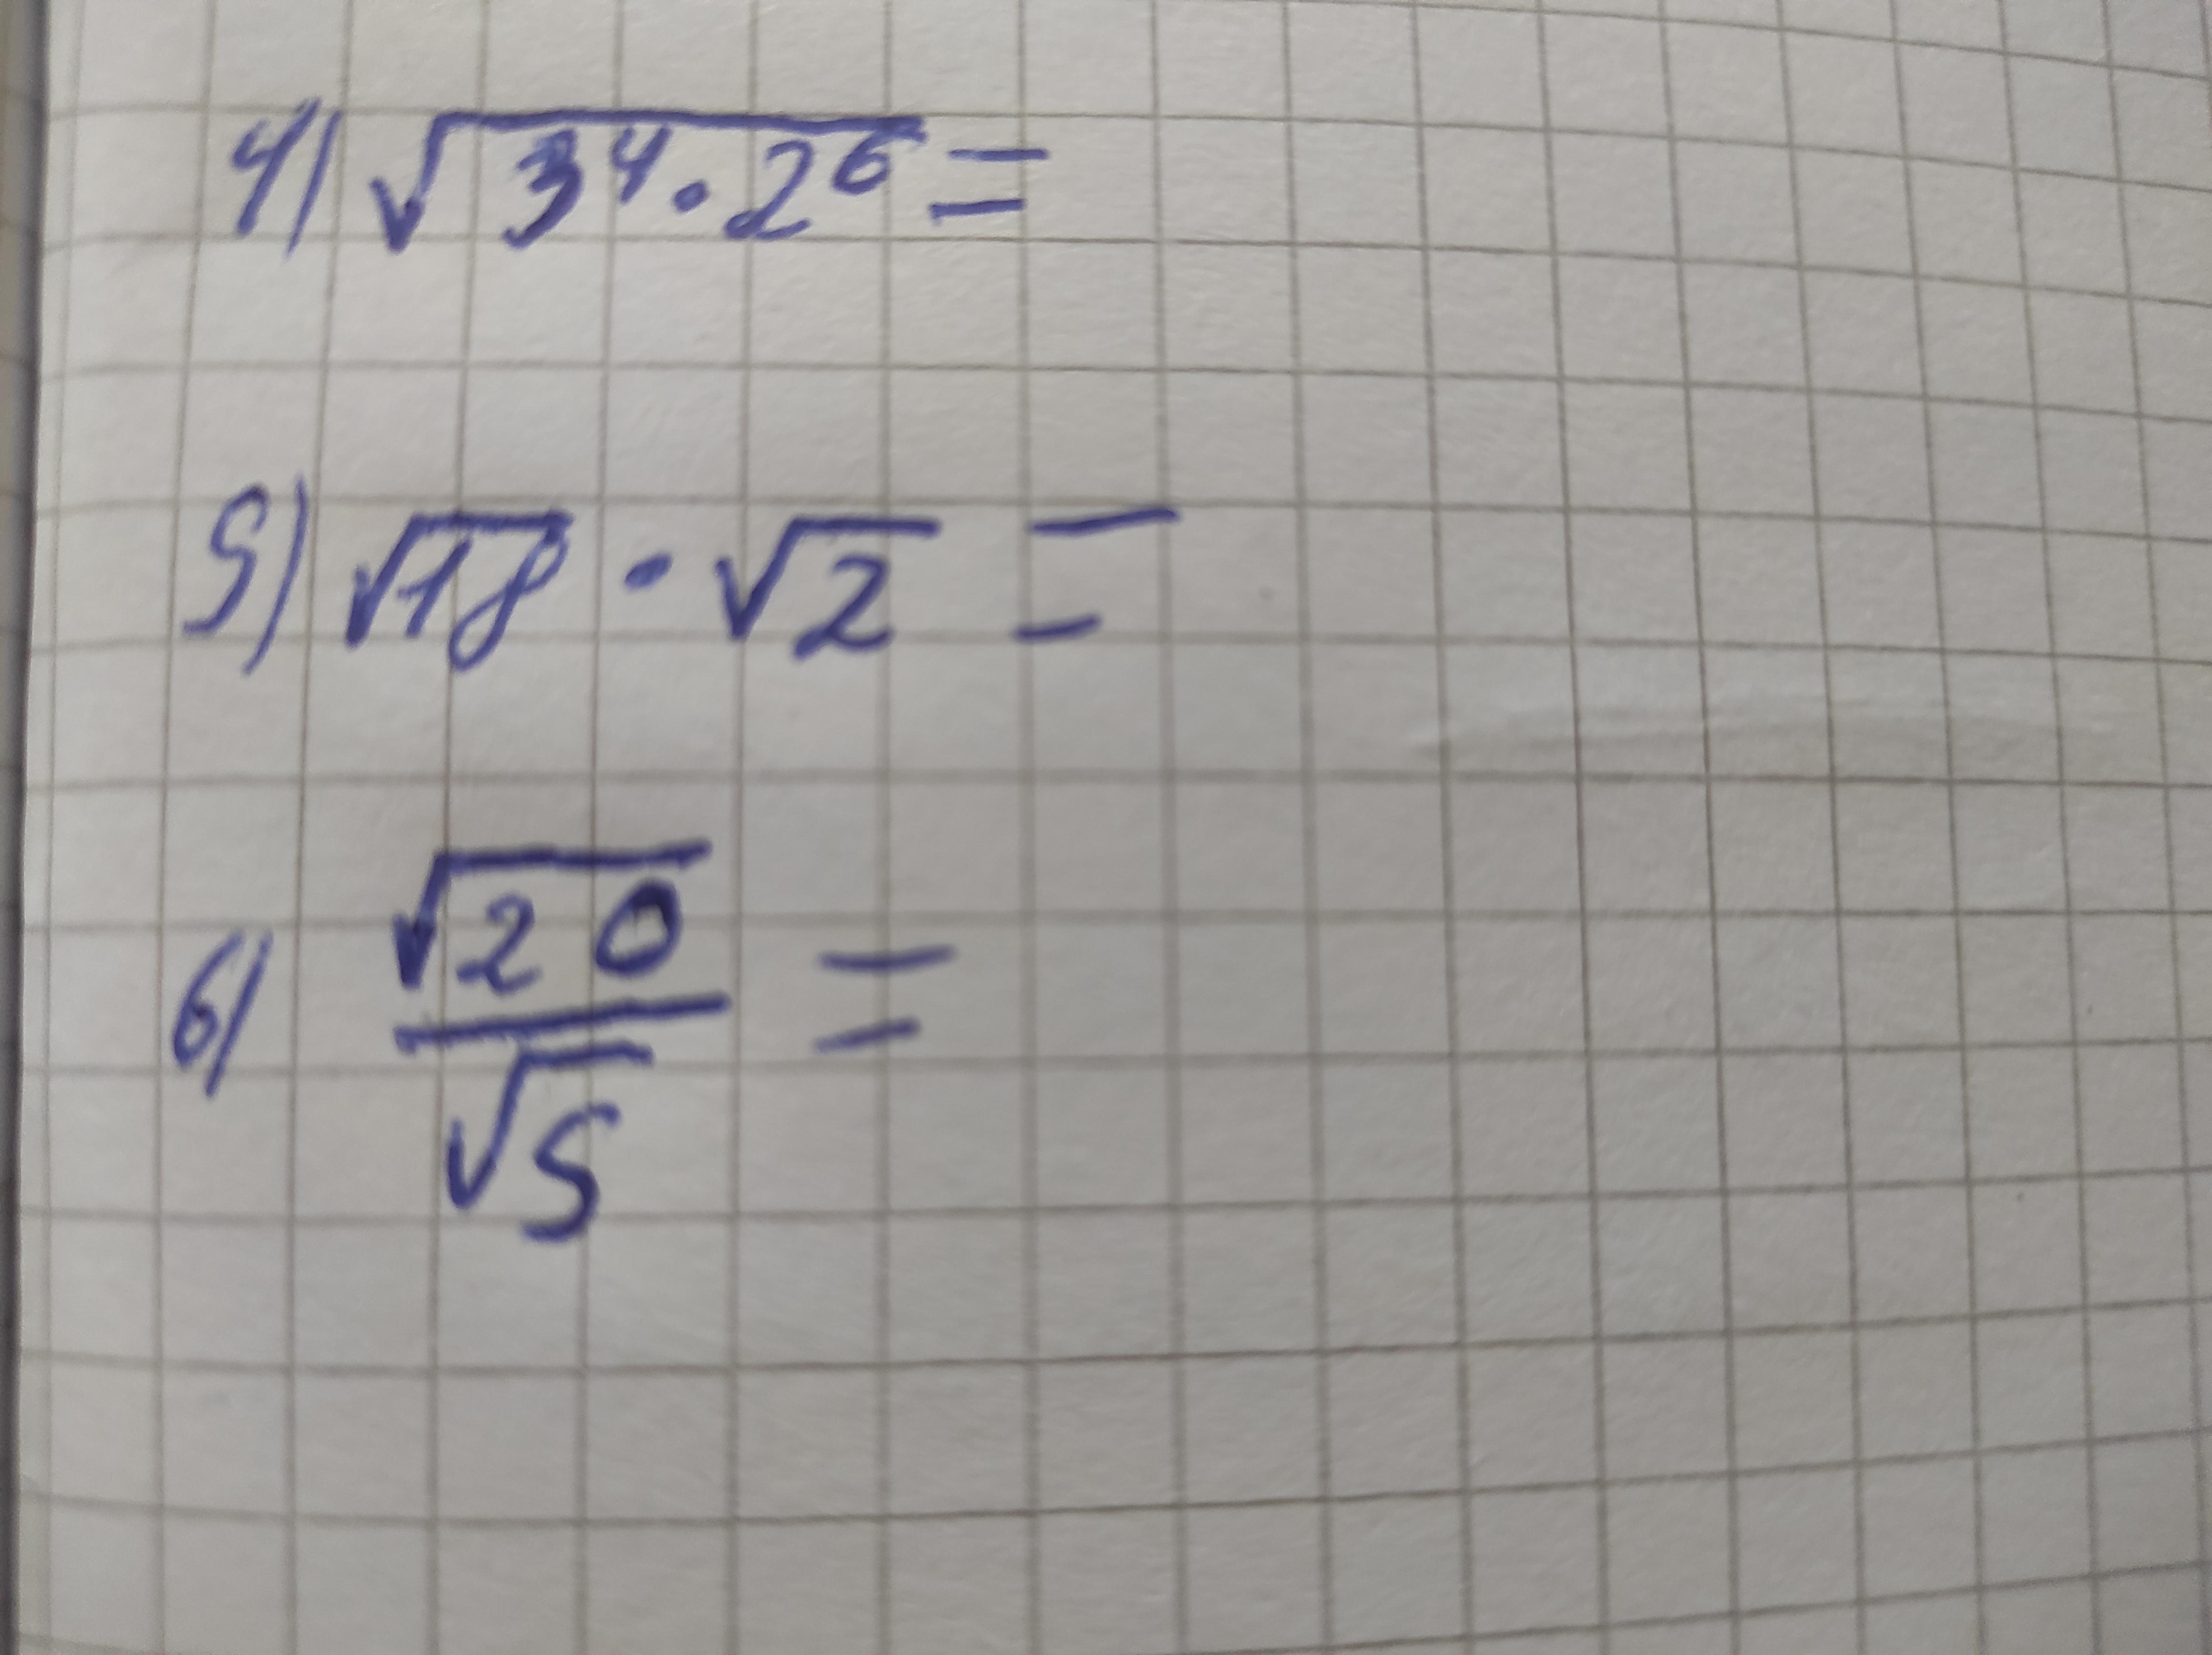 4) √(3⁴ · 2⁶) =
5) √18 · √2 =
6) √20 / √5 =